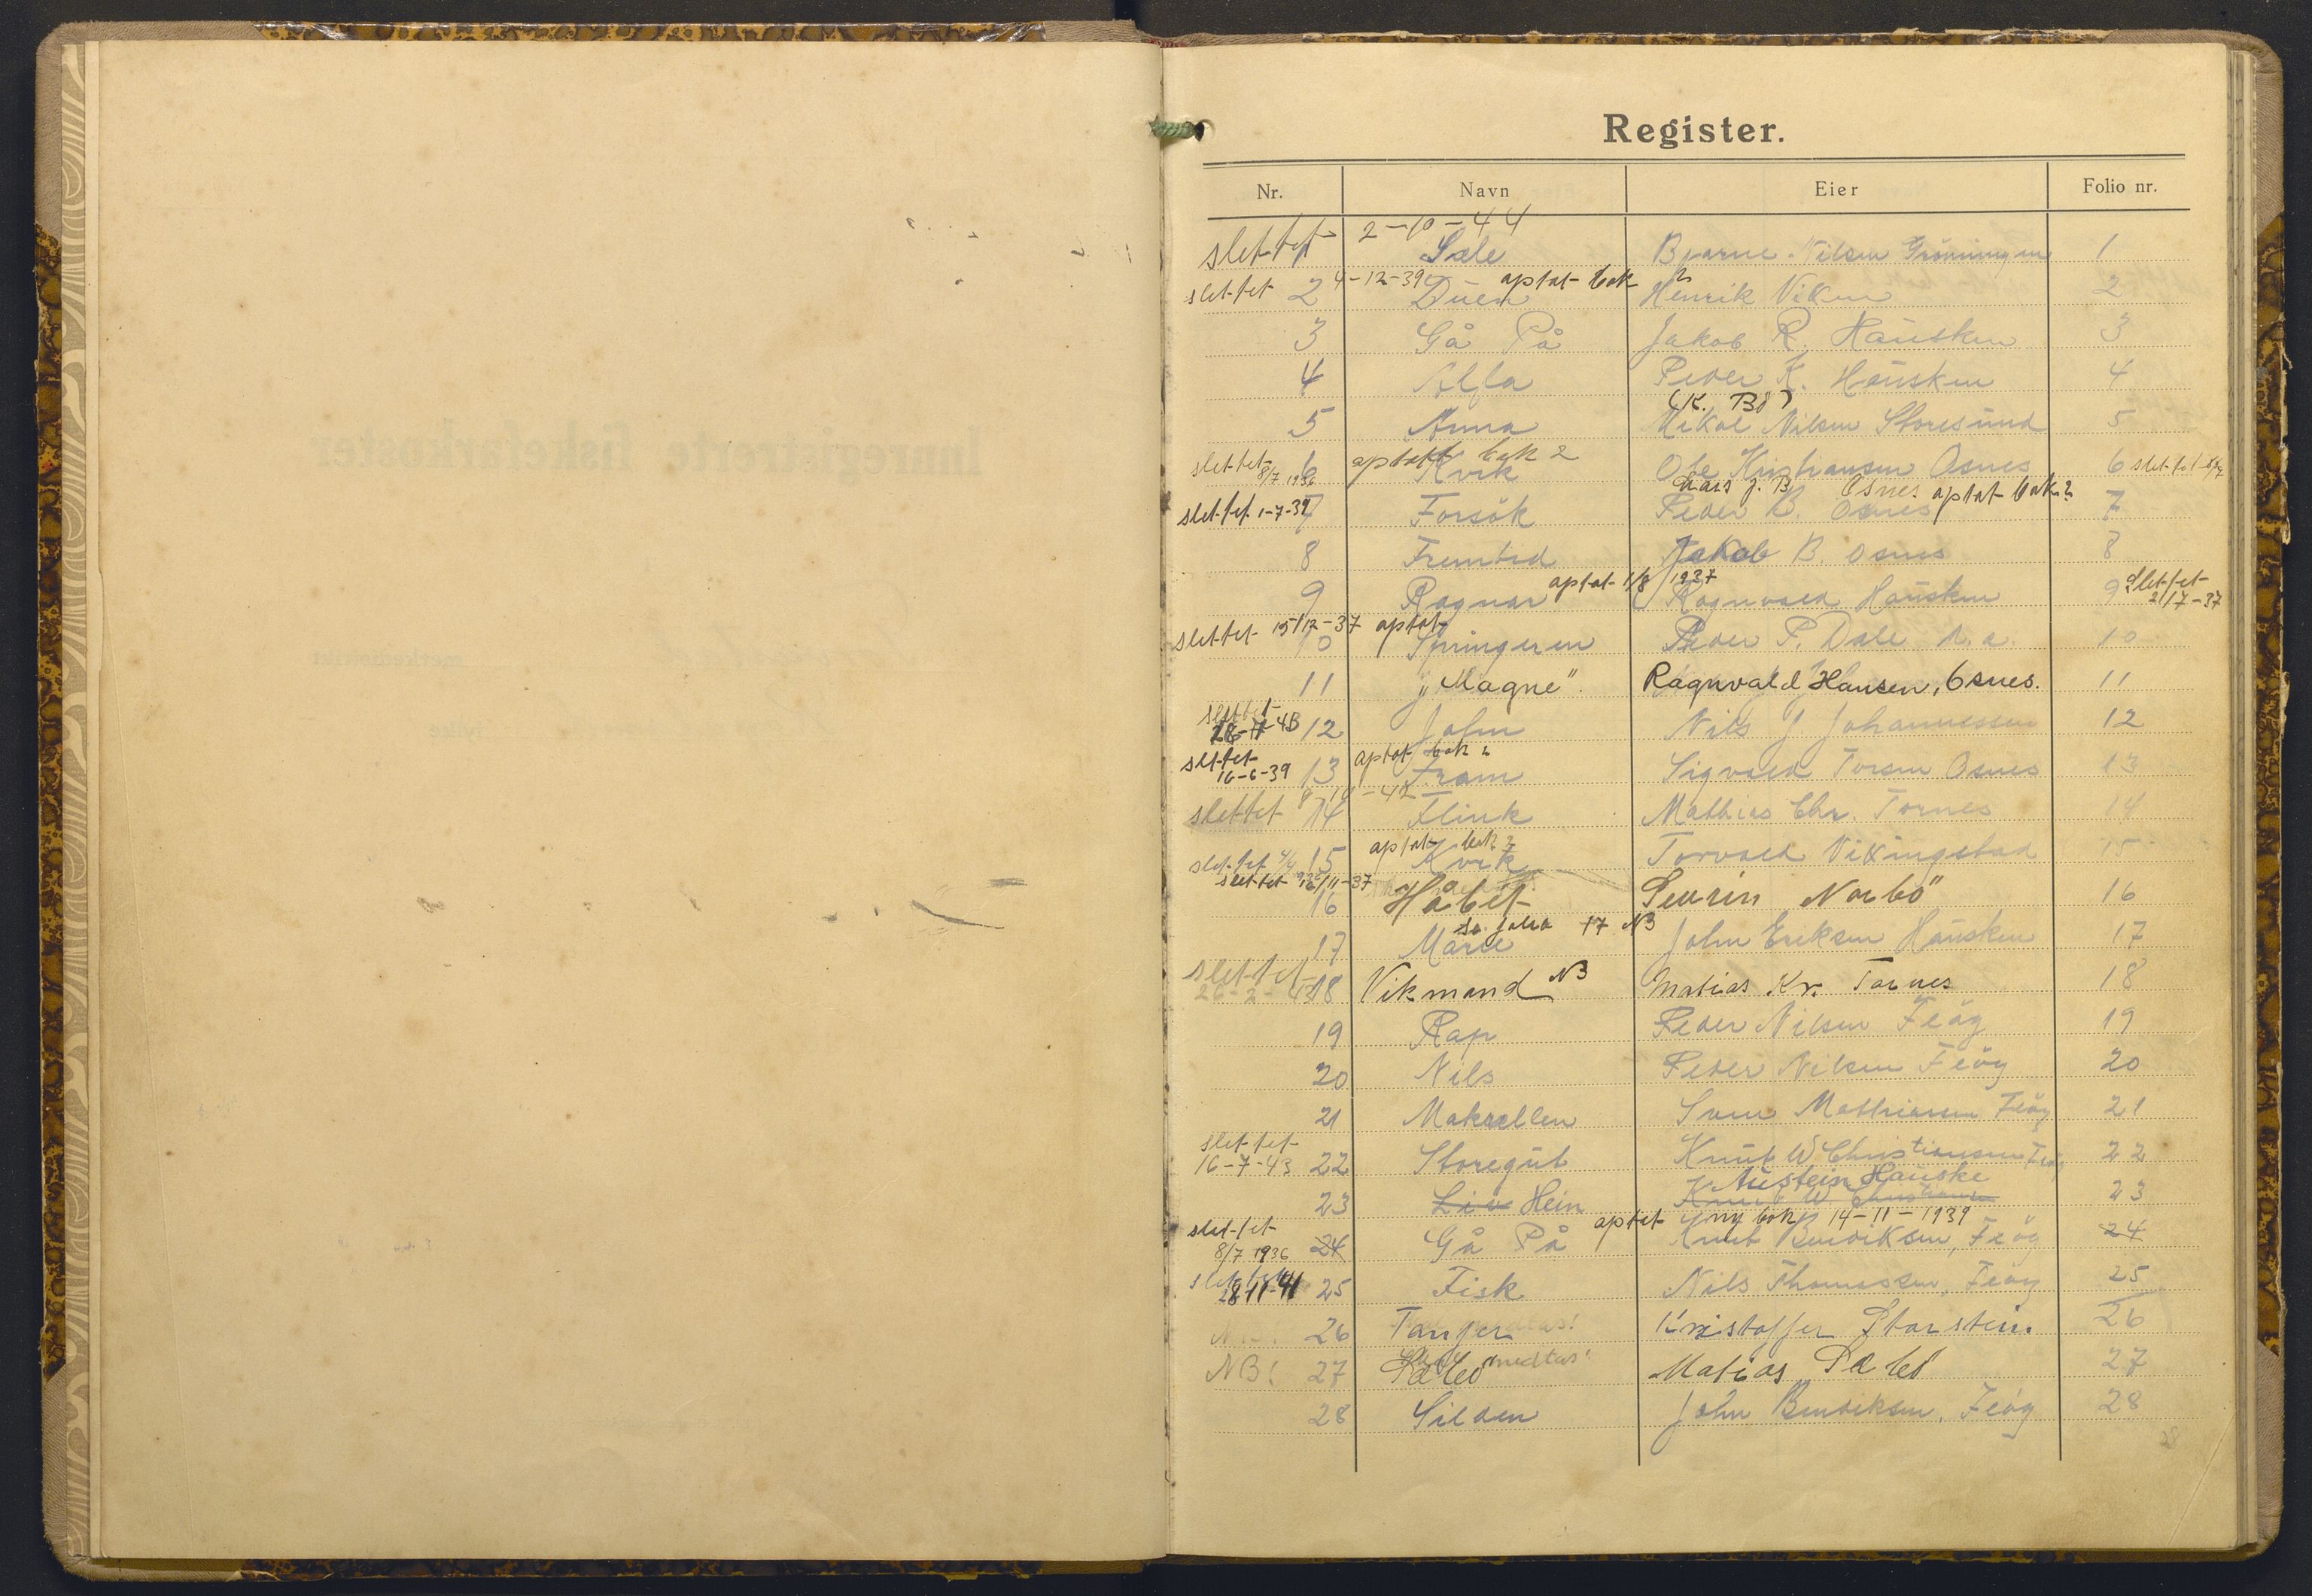 Register.
Nr. Navn Eier Folio nr.
slettet 2-10-44
1 Sæle Bjarne Nilsen Grönningen 1
slettet 2 4-12-39 Duen optat bok 2 Henrik Viken 2
3 Gå På Jakob R. Hausken 3
4 Alfa Peder K. Hausken 4
(K. Bö)
5 Anna Mikal Nilsen Storesund 5
slettet 8/7 1936 6 optatt bok 2 Kvik Ole Kristiansen Osnes 6
Lars J. B. Osnes optat bok 2
slettet 1-7-39 7 Forsök Peder B. Osnes 7
8 Fremtid Jakob B. Osnes 8
9 Ragnar optat 1/8 1937 Ragnvald Hausken 9 slettet 21/7-37
slettet 15/12-37 optat
10 Springeren Peder P. Dale 10
11 „Magne". Ragnvald Hansen, Osnes. 11
slettet 12 John Nils J. Johannessen 12
slettet 16-6-39 13 optat bok 2 Fram Sigvald Torsen Osnes 13
slettet 14 Flink Mathias Chr. Tornes 14
slettet 15 optat bok 2 Kvik Torvald Vikingstad 15
slettet 16/11-37
16 Håbet Sevrin Norbö 16
17 Marie 17 NB John Eriksen Hausken 17
slettet 26-2-43 18 Vikmand NB Matias Kr. Tornes 18
19 Rap Peder Nilsen Feöy 19
20 Nils Peder Nilsen Feöy 20
21 Makrellen Sven Mathiasen Feöy 21
slettet 16-7-43 22 Storegut Knut W Christiansen Feöy 22
Austein Hauske
23 Liv Hein Knut W Christiansen 23
optet ny bok 14-11-1939
slettet 8/7 1936 24 Gå På Knut Bendiksen, Feöy 24
slettet 28-11-41 25 Fisk Nils Thomassen, Feöy 25
26 Tanger Kristoffer Storstein. 26
NB! 27 Sæbö medtas! Matias Sæbö 27
28 Silden John Bendiksen, Feöy 28
28